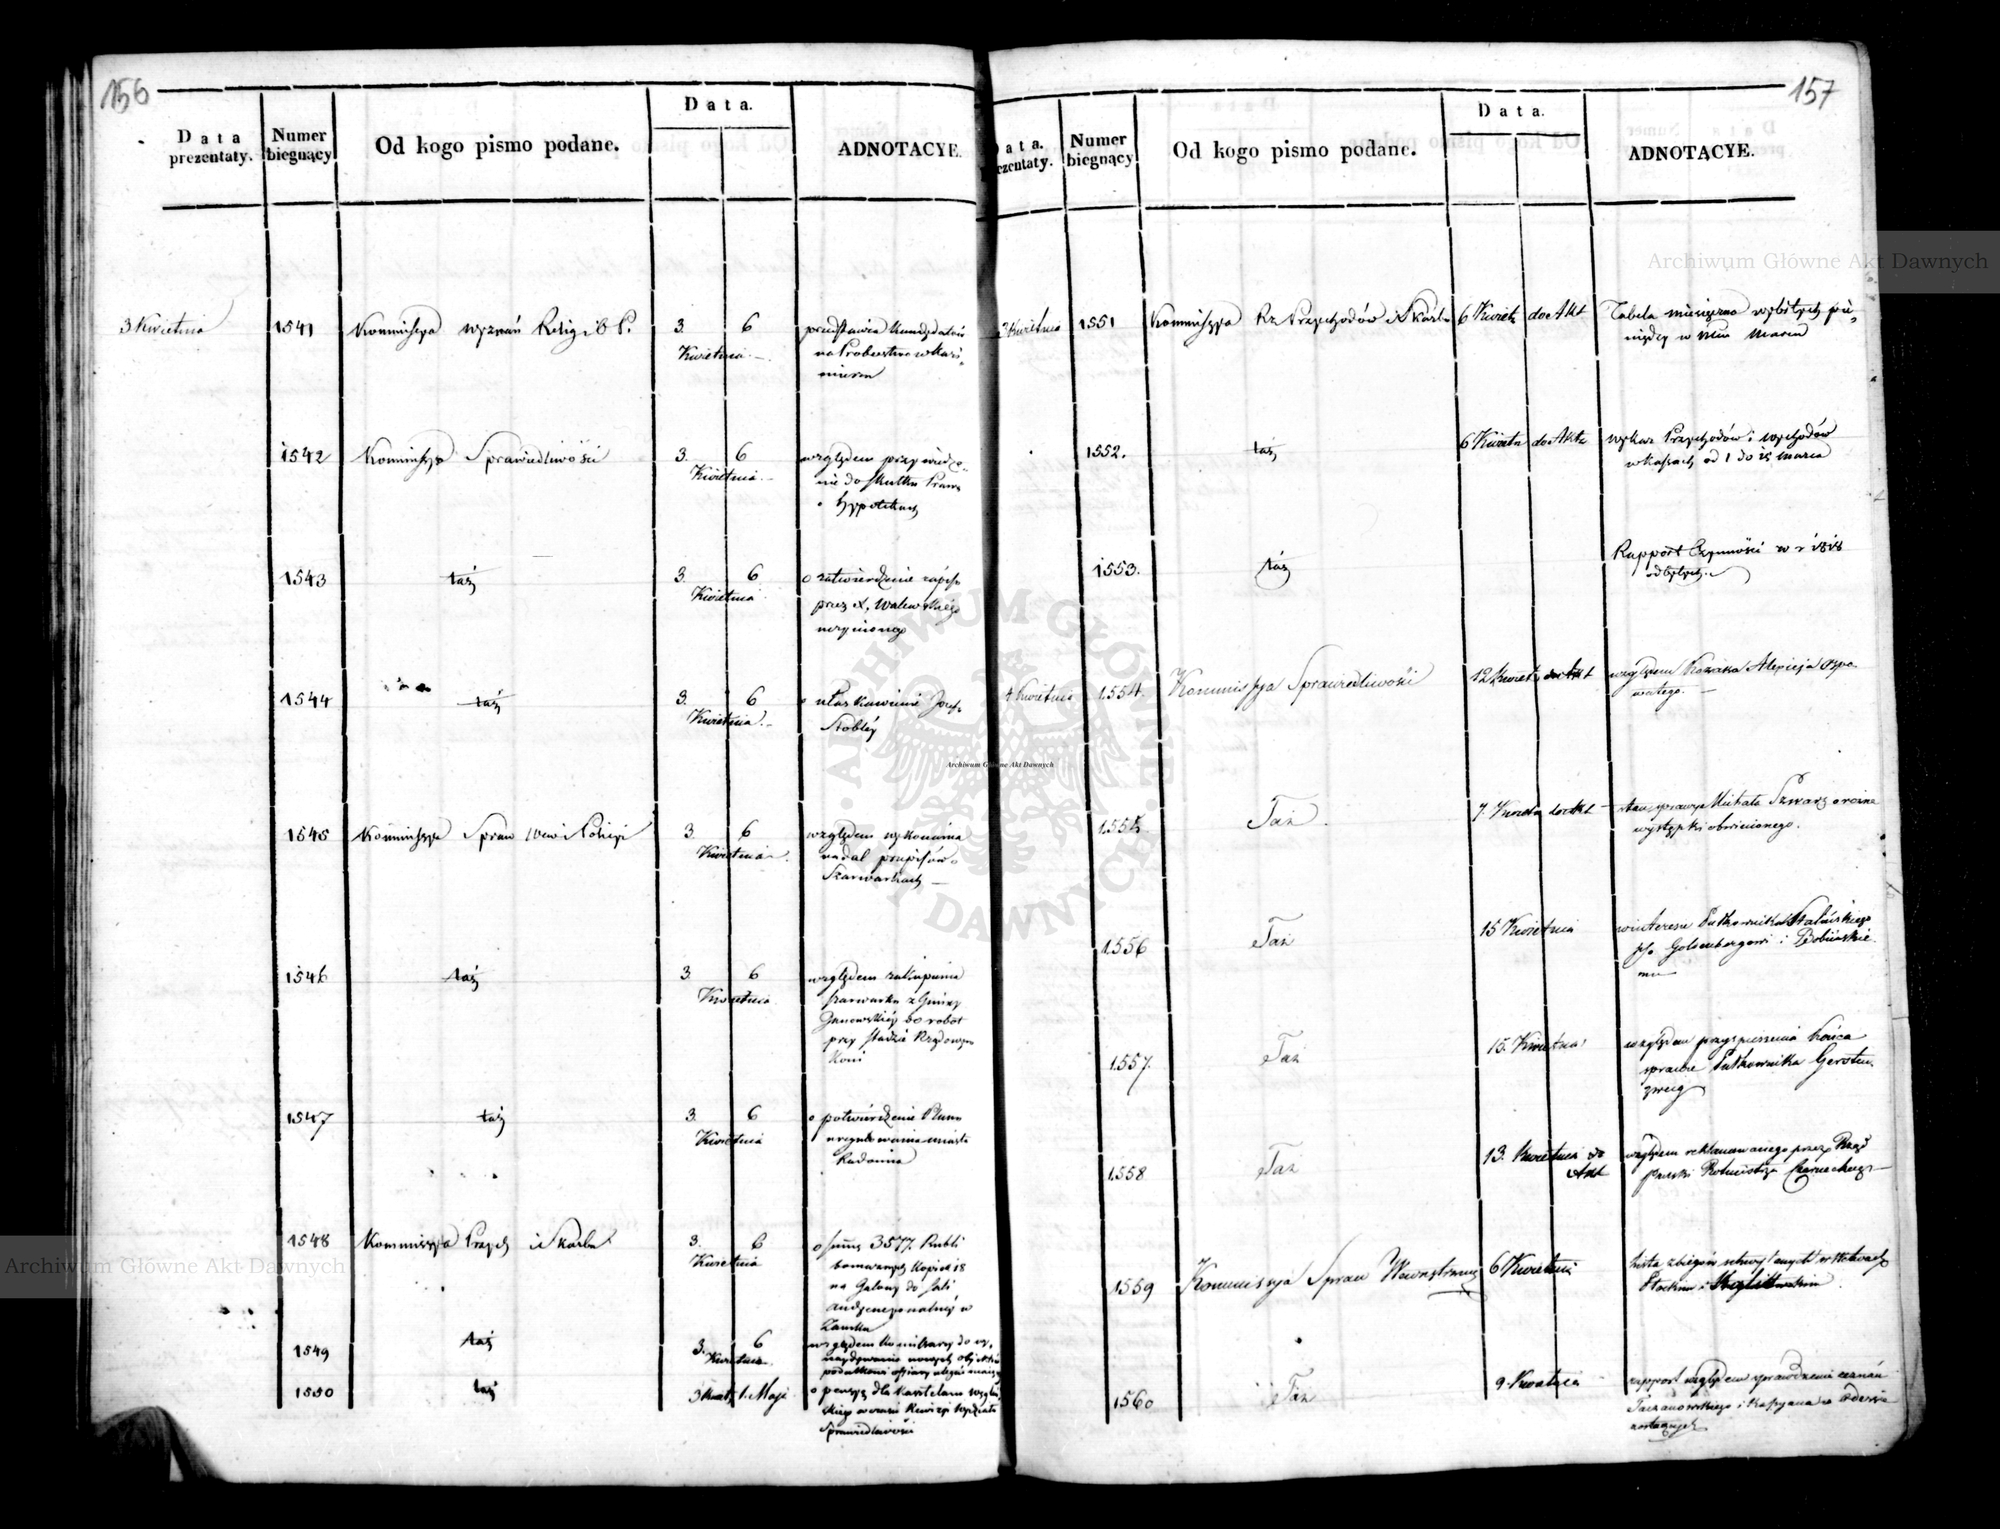 156
Data prezentaty.
Numer biegnący
Od kogo pismo podane.
Data.
ADNOTACYE.
3 Kwietnia 1541 Kommissya wyznań Relig i O P. 3. 6
Kwietnia
przedstawia Kandydatów
na Probostwo w Kazi-
mierzu
1542 Kommissya Sprawiedliwości 3. 6
Kwietnia
względem przywiedze-
nie do skutku Prawa
o hypotekach
1543 taż 3. 6
Kwietnia
o zatwierdzenie zapisu
przez X. Walewskiego
uczynionego
1544 taż 3. 6
Kwietnia
o ułaskawienie Józefa
1545 Kommissya Spraw Wew i Policyi 3. 6
Kwietnia
względem wykonania
nadal przepisów o
Szarwarkach
1546 taż 3 6
Kwietnia
względem zakupienia
szarwarku z Gminy
Janowskiej do robot
przy stadzie Rządowym
Koni
1547 taż 3. 6
Kwietnia
o potwierdzenie Planu
uregulowania miasta
Radomia
1548 Kommissya Przych i Skarbu 3. 6
Kwietnia
o summę 3577. Rubli
kopiek 18
na Galony do Sali
audyencyonalnej w
Zamku
1549 taż 3. 6
Kwietnia
względem
1550 taż 3 Kwiet 1. Maja
o pensyą dla Kasztelana
Sprawiedliwości
157
Data. prezentaty.
Numer biegnący
Od kogo pismo podane.
Data.
ADNOTACYE.
3 Kwietnia 1551 Kommissya Rz Przychodów i Skarbu 6 Kwiet do Akt
Tabela miesięczna wybitych pie-
niędzy w Marcu
1552. taż 6 Kwiet do Akt
wykaz Przychodów i wychodów
w kassach od 1 do 15 marca
1553. taż
Rapport Czynności w r 1818
odbytych
4 Kwietnia 1554. Kommissya Sprawiedliwości 12 Kwiet do Akt
względem Kozaka Alexieja
1555 Taż 7. Kwietn do Akt
Michała Szwarc o różne
występki obwinionego.
1556 Taż 15 Kwietnia
w interesie Pułkownika
Goldenbergowi i
mu
1557. Taż 15. Kwietnia
względem przyspieszenia końca
sprawie Pułkownika Gersten-
zweig
1558 Taż 13. Kwietnia do
Akt
względem reklamowanego przez Rząd
Pruski Rotmistrza
1559 Kommissya Spraw Wewnętrznych 6 Kwietnia
lista zbiegów
Płockim i
1560 Taż 9. Kwietnia
rapport względem sprawdzenia zeznań
Taczanowskiego i
Archiwum Główne Akt Dawnych
Archiwum Główne Akt Dawnych
Archiwum Główne Akt Dawnych
ARCHIWUM GŁÓWNE AKT DAWNYCH